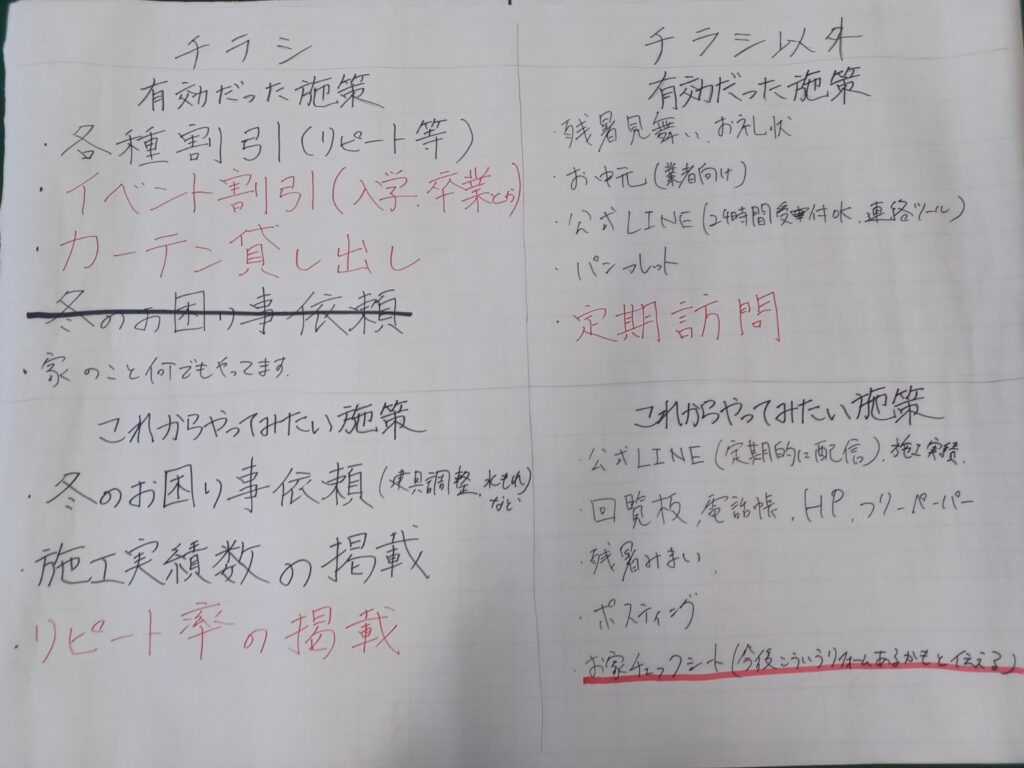 チラシ
有効だった施策
・各種割引(リピート等)
・イベント割引(入学.卒業とか)
・カーテン貸し出し
冬のお困り事依頼
・家のこと何でもやってます.
これからやってみたい施策
・冬のお困り事依頼(建具調整.水もれ)など
・施工実績数の掲載
・リピート率の掲載
チラシ以外
有効だった施策
・残暑見舞い、お礼状
・お中元(業者向け)
・公式LINE(24時間受付OK.連絡ツール)
・パンフレット
・定期訪問
これからやってみたい施策
・公式LINE(定期的に配信).施工実績.
・回覧板、電話帳、HP、フリーペーパー
・残暑みまい.
・ポスティング
・お家チェックシート(今後こういうリフォームあるかもと伝える)